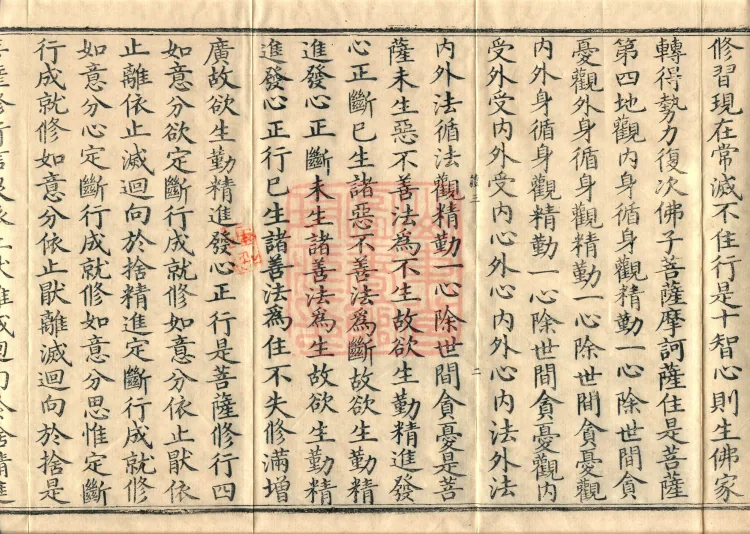 修習現在常滅不住行是十智心則生佛家
轉得勢力復次佛子菩薩摩訶薩住是菩薩
第四地觀內身循身觀精勤一心除世間貪
憂觀外身循身觀精勤一心除世間貪憂觀
內外身循身觀精勤一心除世間貪憂觀內
受外受內外受內心外心內外心內法外法
二
內外法循法觀精勤一心除世間貪憂是菩
薩未生惡不善法為不生故欲生勤精進發
心正斷已生諸惡不善法為斷故欲生勤精
進發心正斷未生諸善法為生故欲生勤精
進發心正行已生諸善法為住不失修滿增
廣故欲生勤精進發心正行是菩薩修行四
如意分欲定斷行成就修如意分依止猒依
止離依止滅迴向於捨精進定斷行成就修
如意分心定斷行成就修如意分思惟定斷
行成就修如意分依止猒離滅迴向於捨是